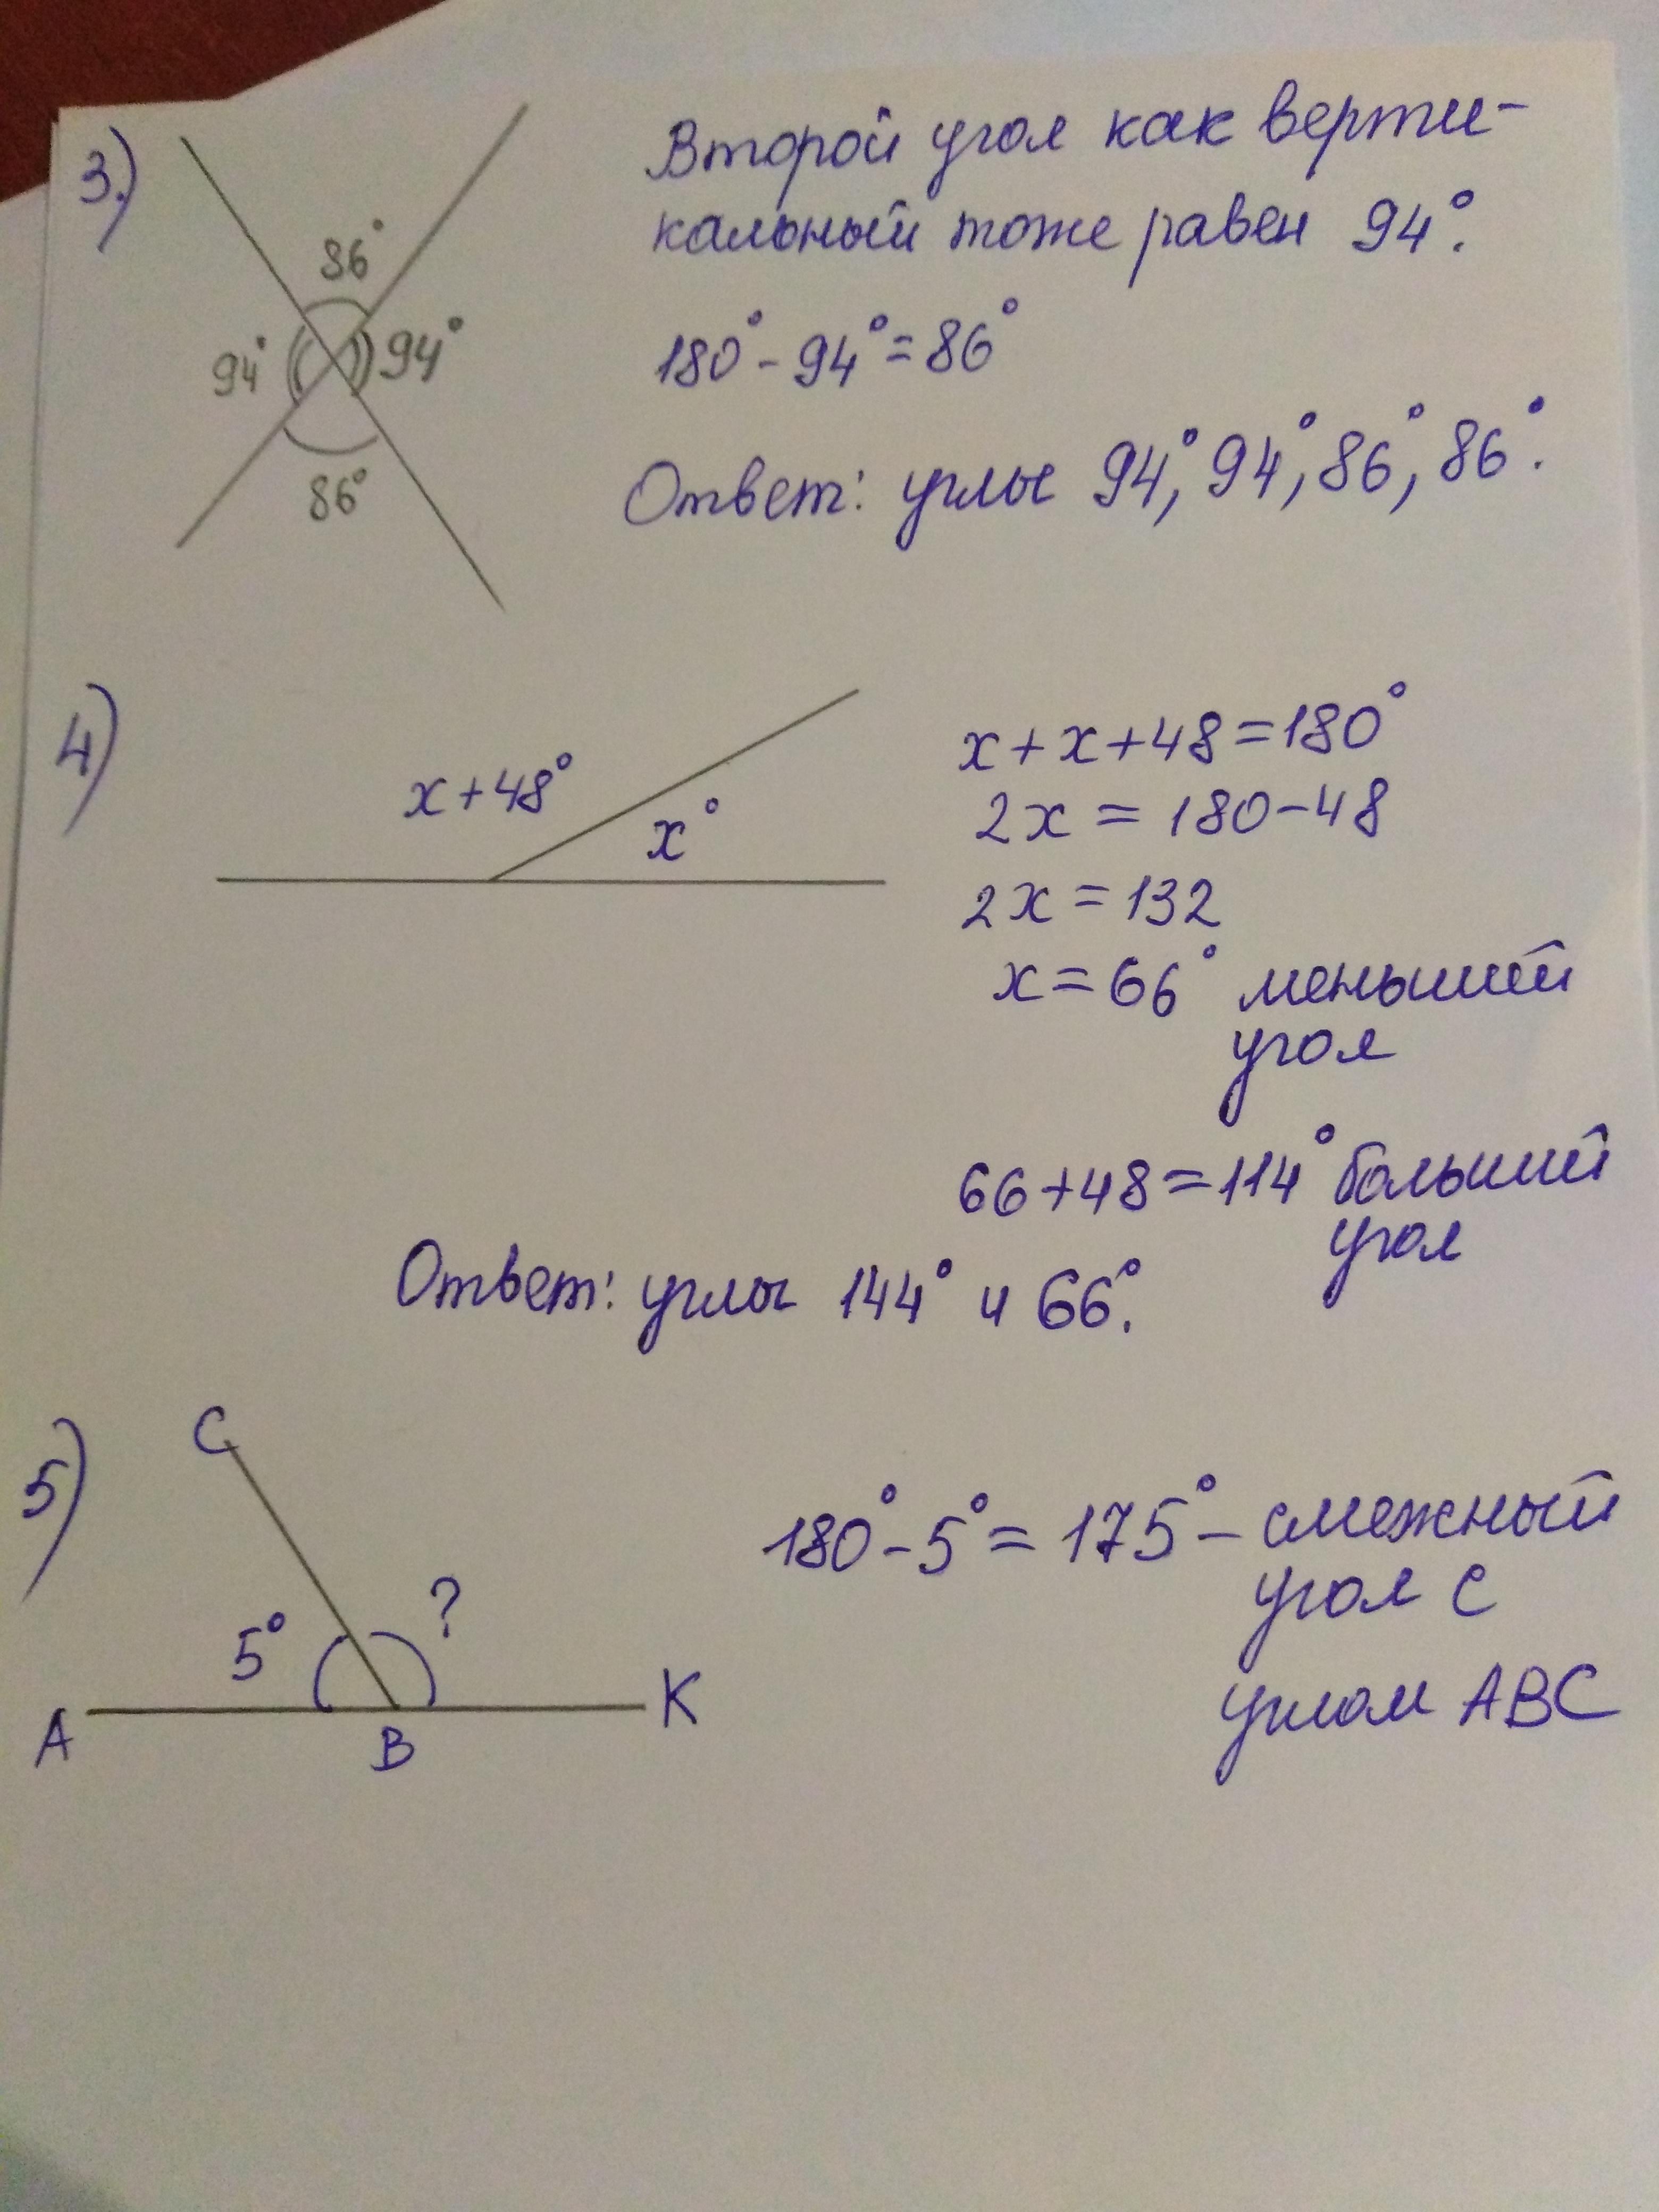 3.)
86°
94°
94°
86°
Второй угол как верти-
кальный тоже равен 94°.
180° - 94° = 86°
Ответ: углы 94°, 94°, 86°, 86°.
4)
x+48°
x°
x+x+48=180°
2x = 180-48
2x = 132
x = 66° меньший
угол
66+48=114° больший
угол
Ответ: углы 144° и 66°.
5)
C
5°
?
A
B
K
180° - 5° = 175° - смежный
угол с
углом ABC